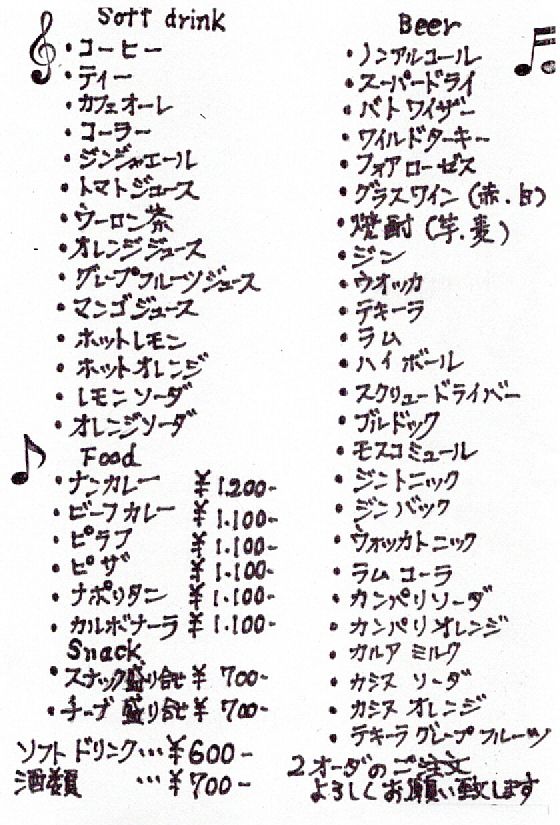 Soft drink
・コーヒー
・ティー
・カフェオーレ
・コーラー
・ジンジャエール
・トマトジュース
・ウーロン茶
・オレンジジュース
・グレープフルーツジュース
・マンゴジュース
・ホットレモン
・ホットオレンジ
・レモンソーダ
・オレンジソーダ
Food
・ナンカレー ¥1.200-
・ビーフカレー ¥1.100-
・ピラフ ¥1.100-
・ピザ ¥1.100-
・ナポリタン ¥1.100-
・カルボナーラ ¥1.100-
Snack
・スナック盛り合せ ¥700-
・チーズ盛り合せ ¥700-
ソフトドリンク…¥600-
酒類 …¥700-
Beer
・ノンアルコール
・スーパードライ
・バトワイザー
・ワイルドターキー
・フォアローゼス
・グラスワイン(赤.白)
・焼酎(芋.麦)
・ジン
・ウオッカ
・テキーラ
・ラム
・ハイボール
・スクリュードライバー
・ブルドック
・モスコミュール
・ジントニック
・ジンバック
・ウォッカトニック
・ラムコーラ
・カンパリソーダ
・カンパリオレンジ
・カルアミルク
・カシスソーダ
・カシスオレンジ
・テキーラグレープフルーツ
2オーダのご注文
よろしくお願い致します